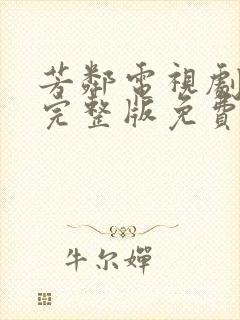 芳鄰電視劇
完整版免費
牛尔嬋